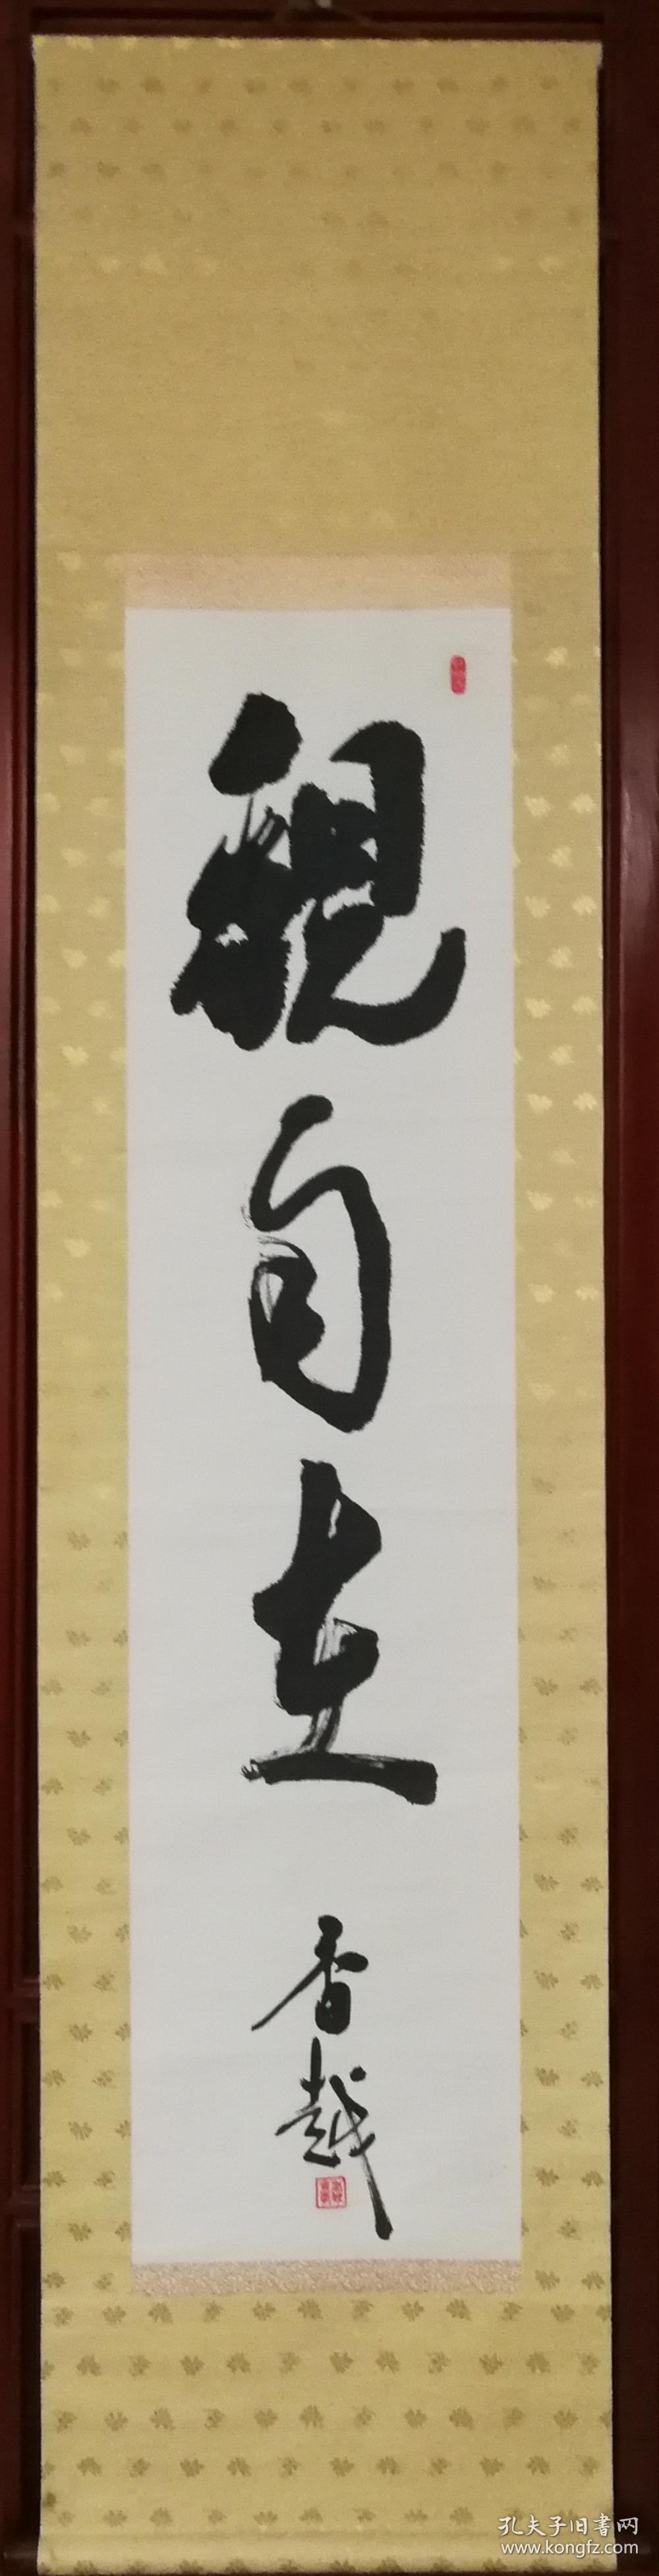 観自在
香越
孔夫子旧書网
www.kongfz.com